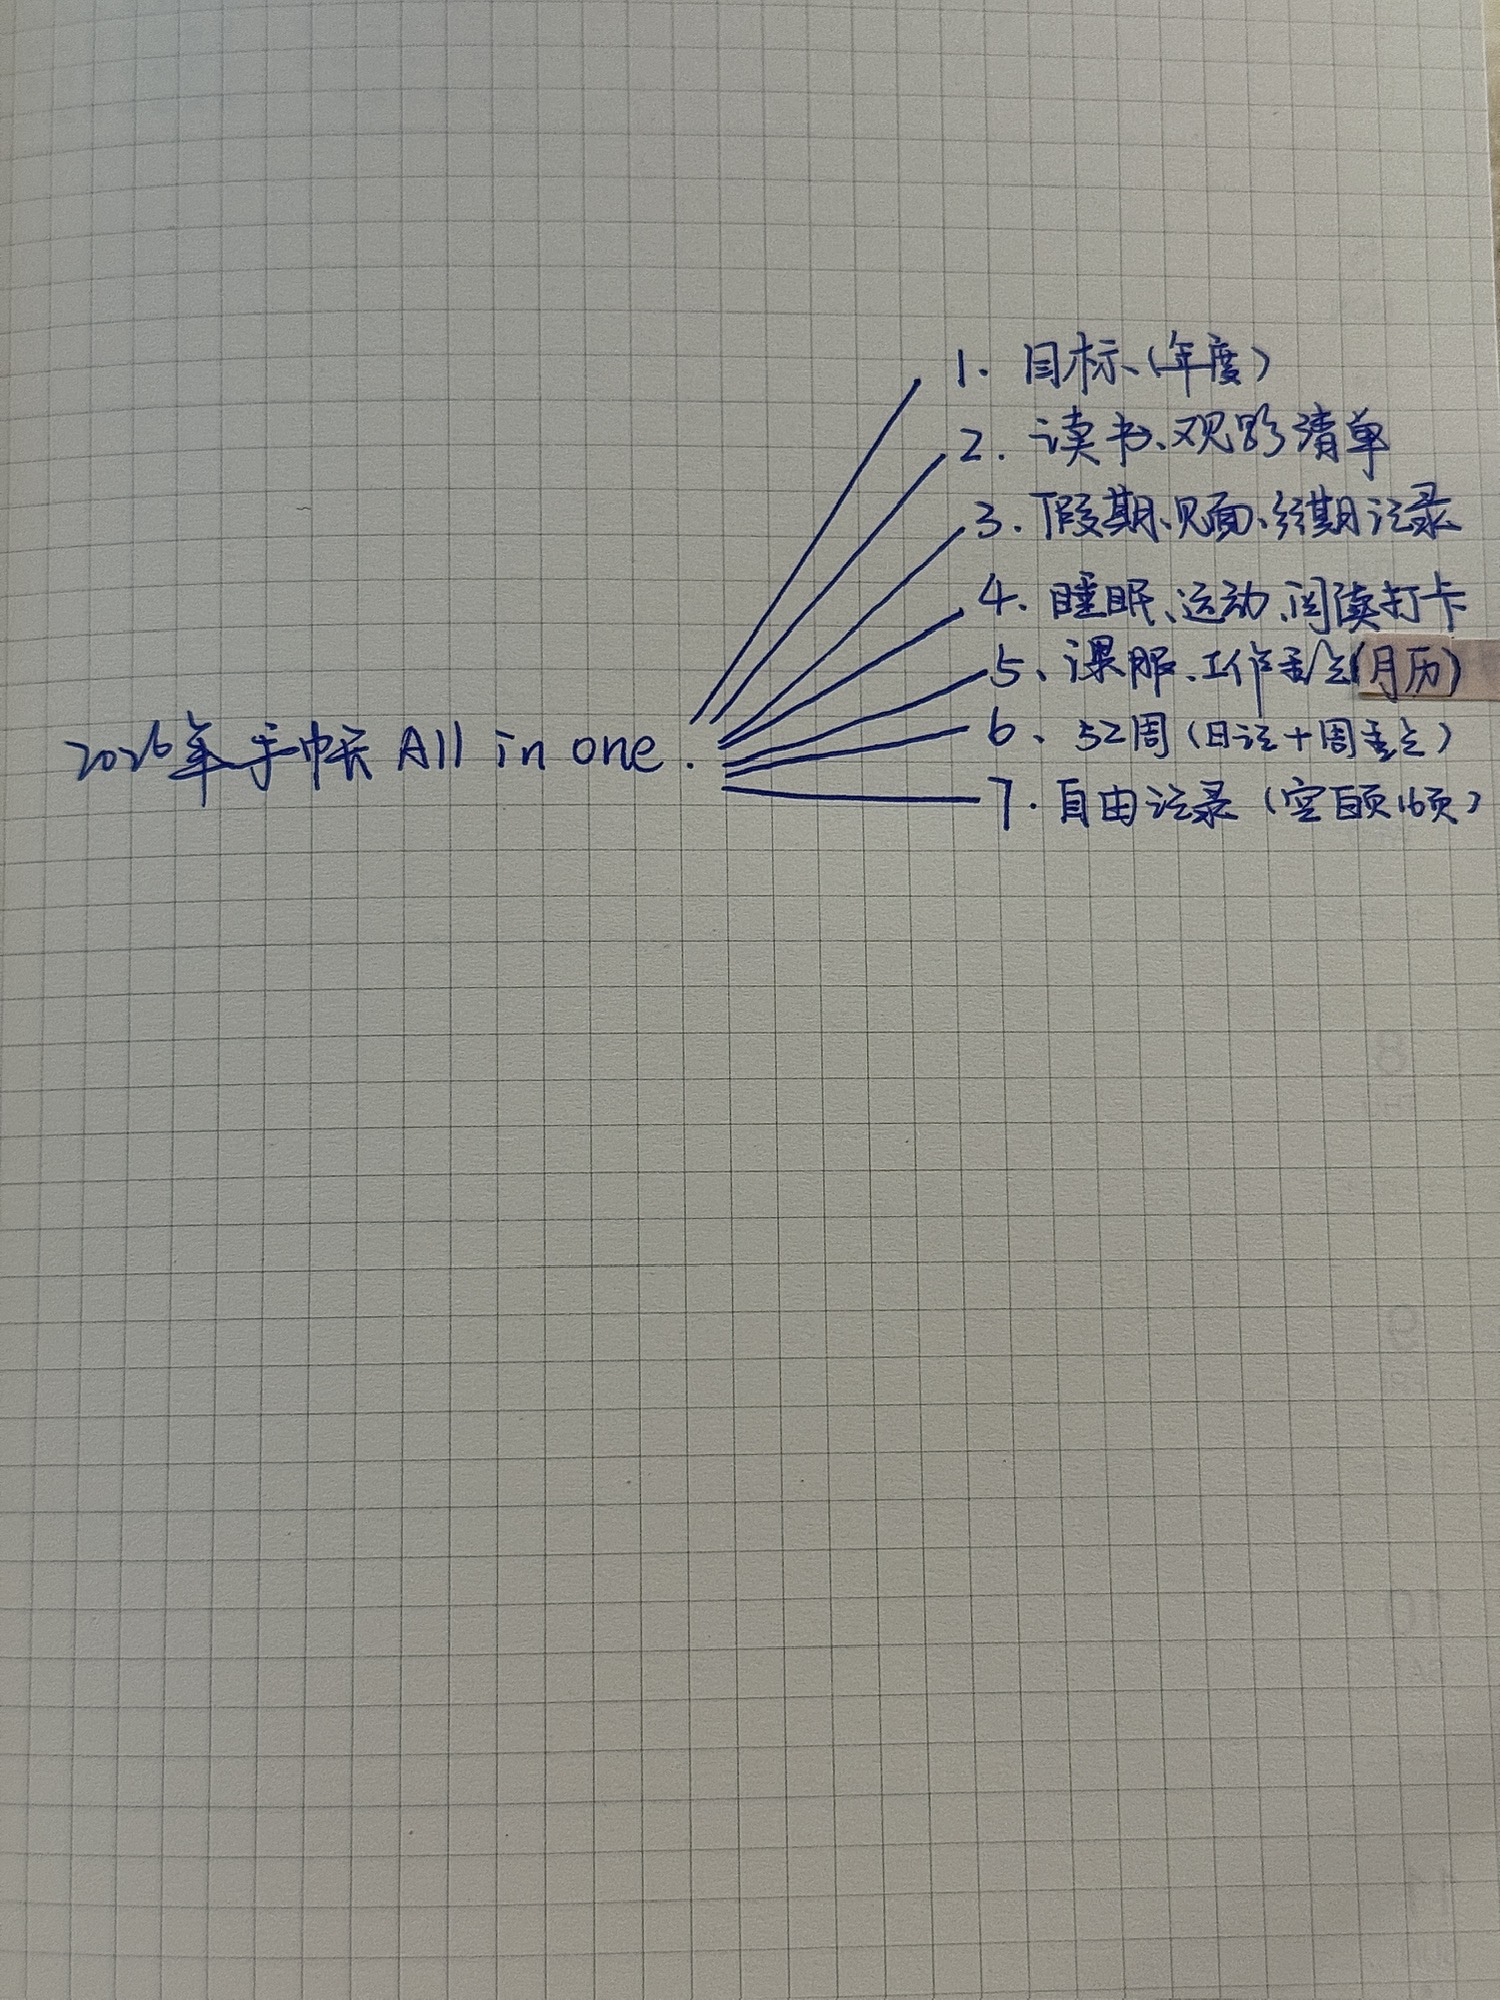 2026年手帐 All in one.
1. 目标、(年度)
2. 读书、观影清单
3. 假期、见面、经期记录
4. 睡眠、运动、阅读打卡
5、课服、工作重点(月历)
6、52周(日记+周重点)
7. 自由记录(空白页16页)
8
9
FRI
10
SAT